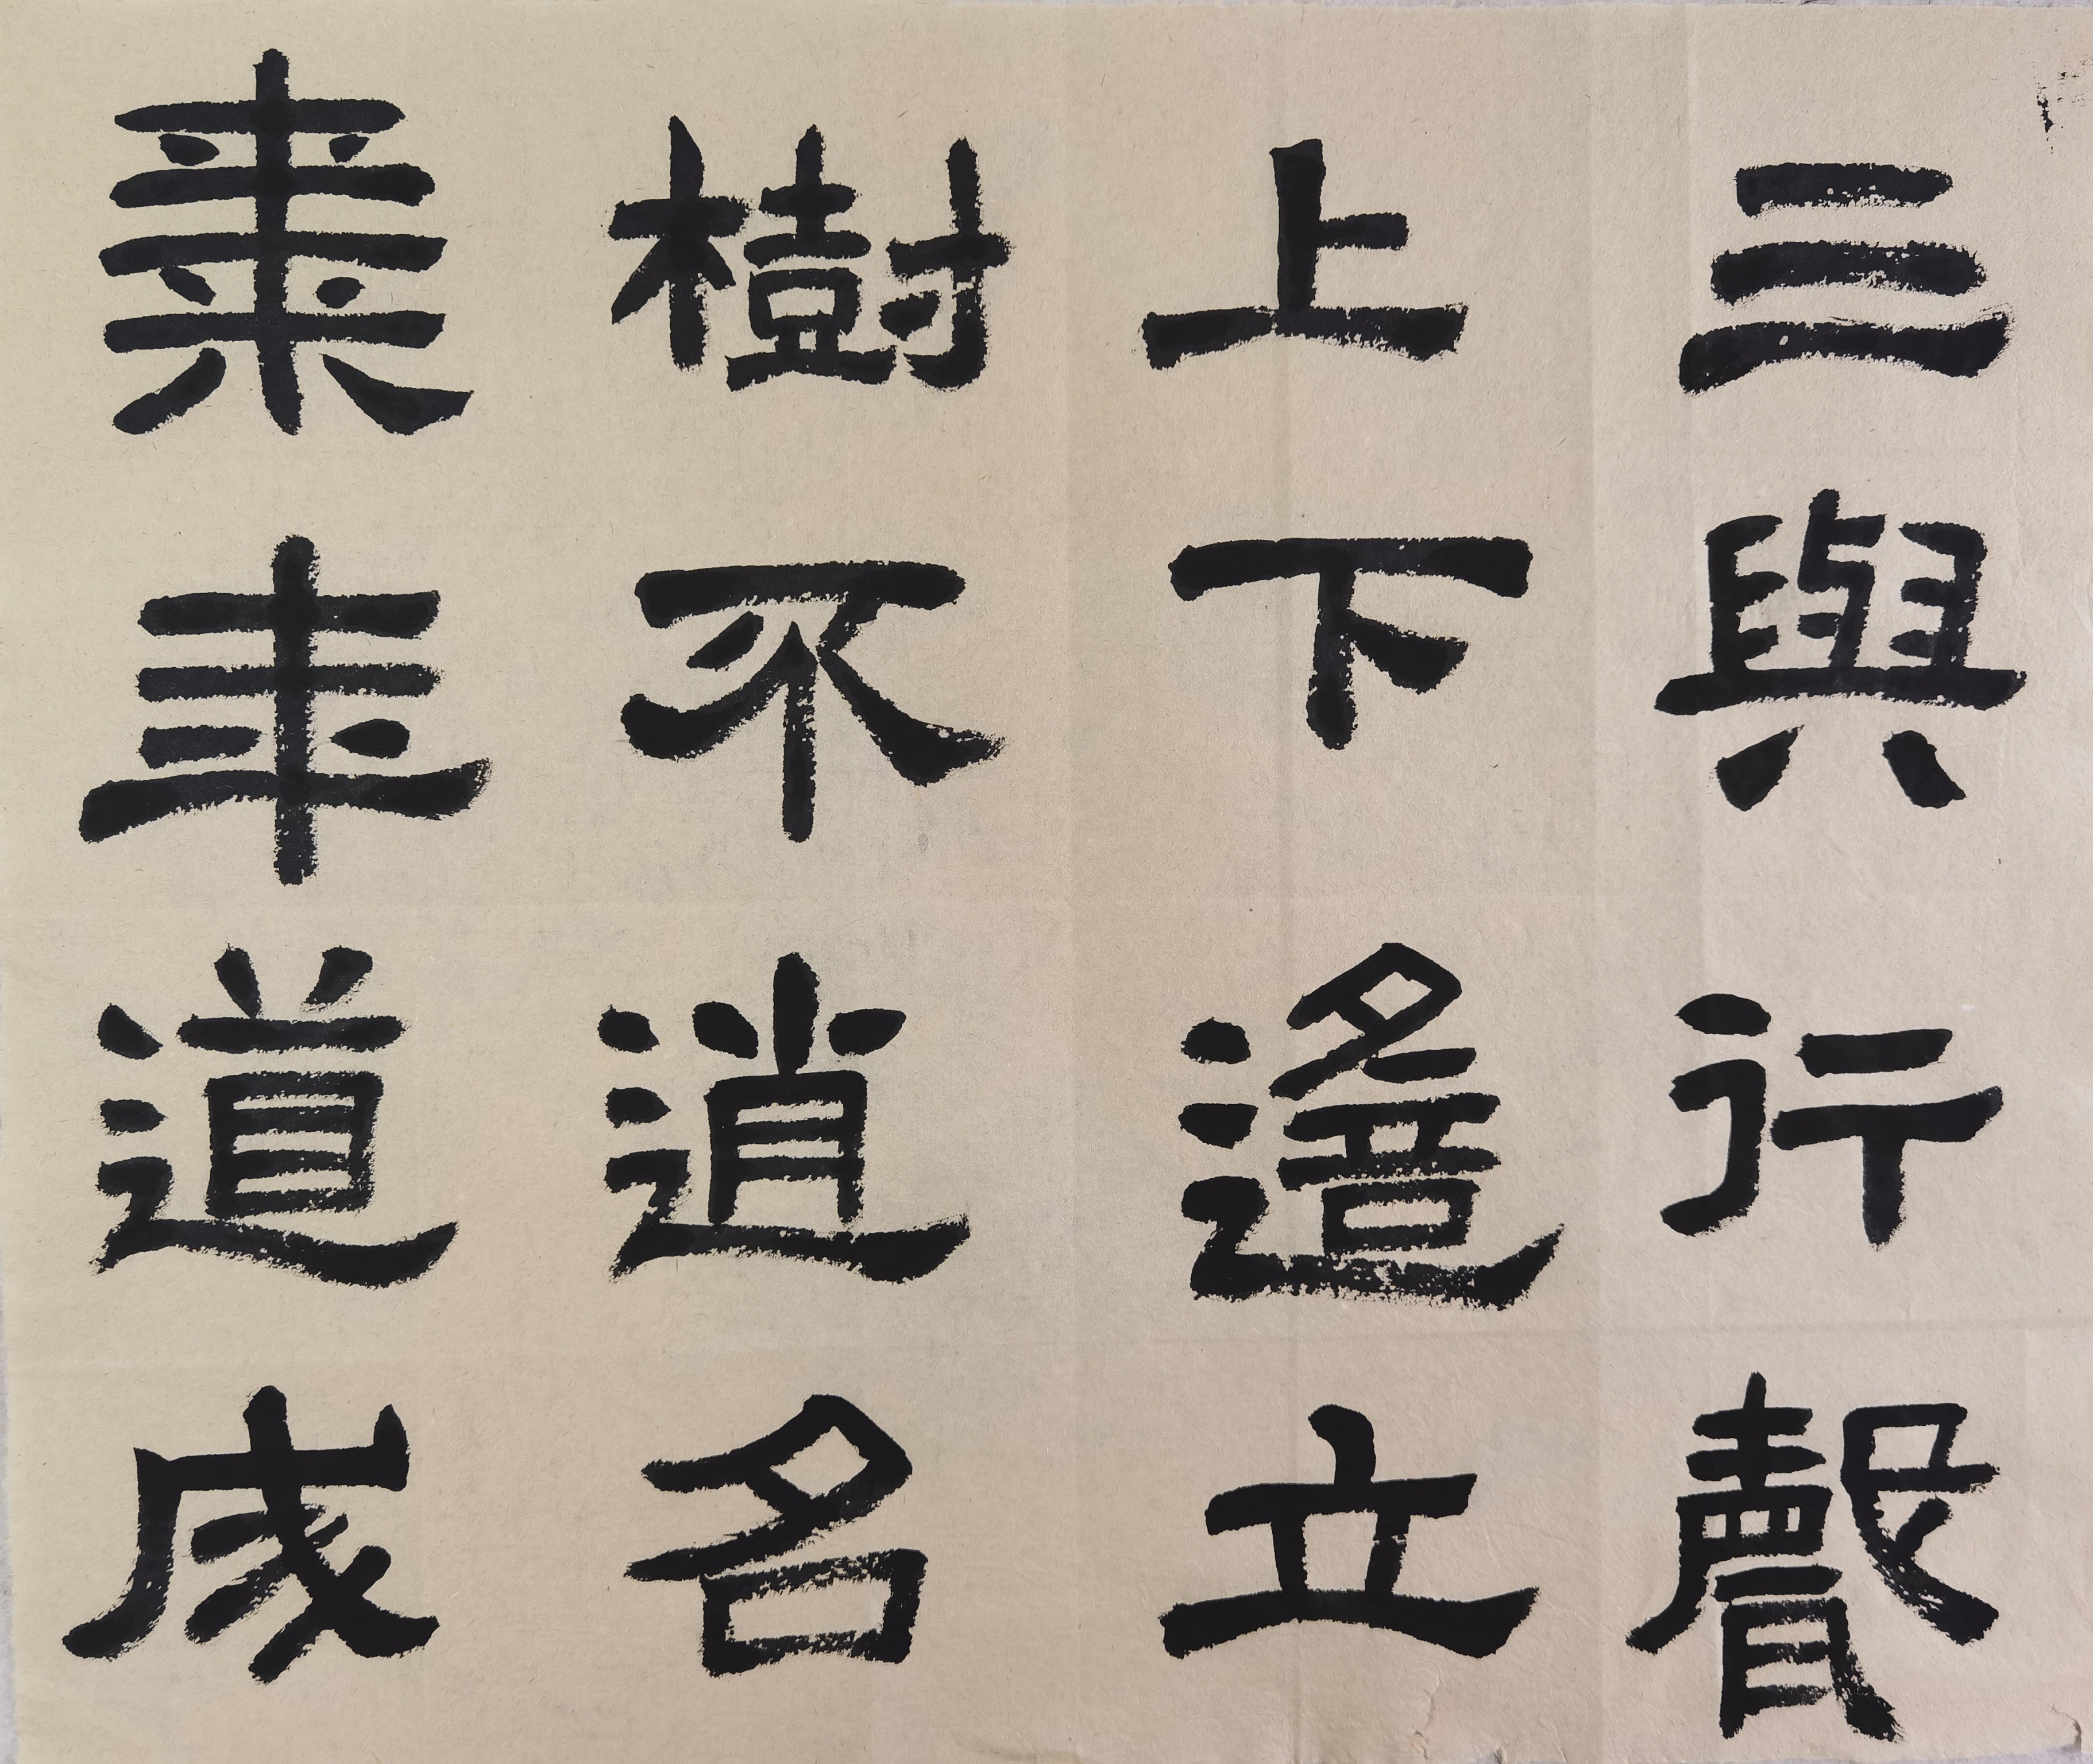 三與行聲
上下遙立
樹不逍名
業年道成